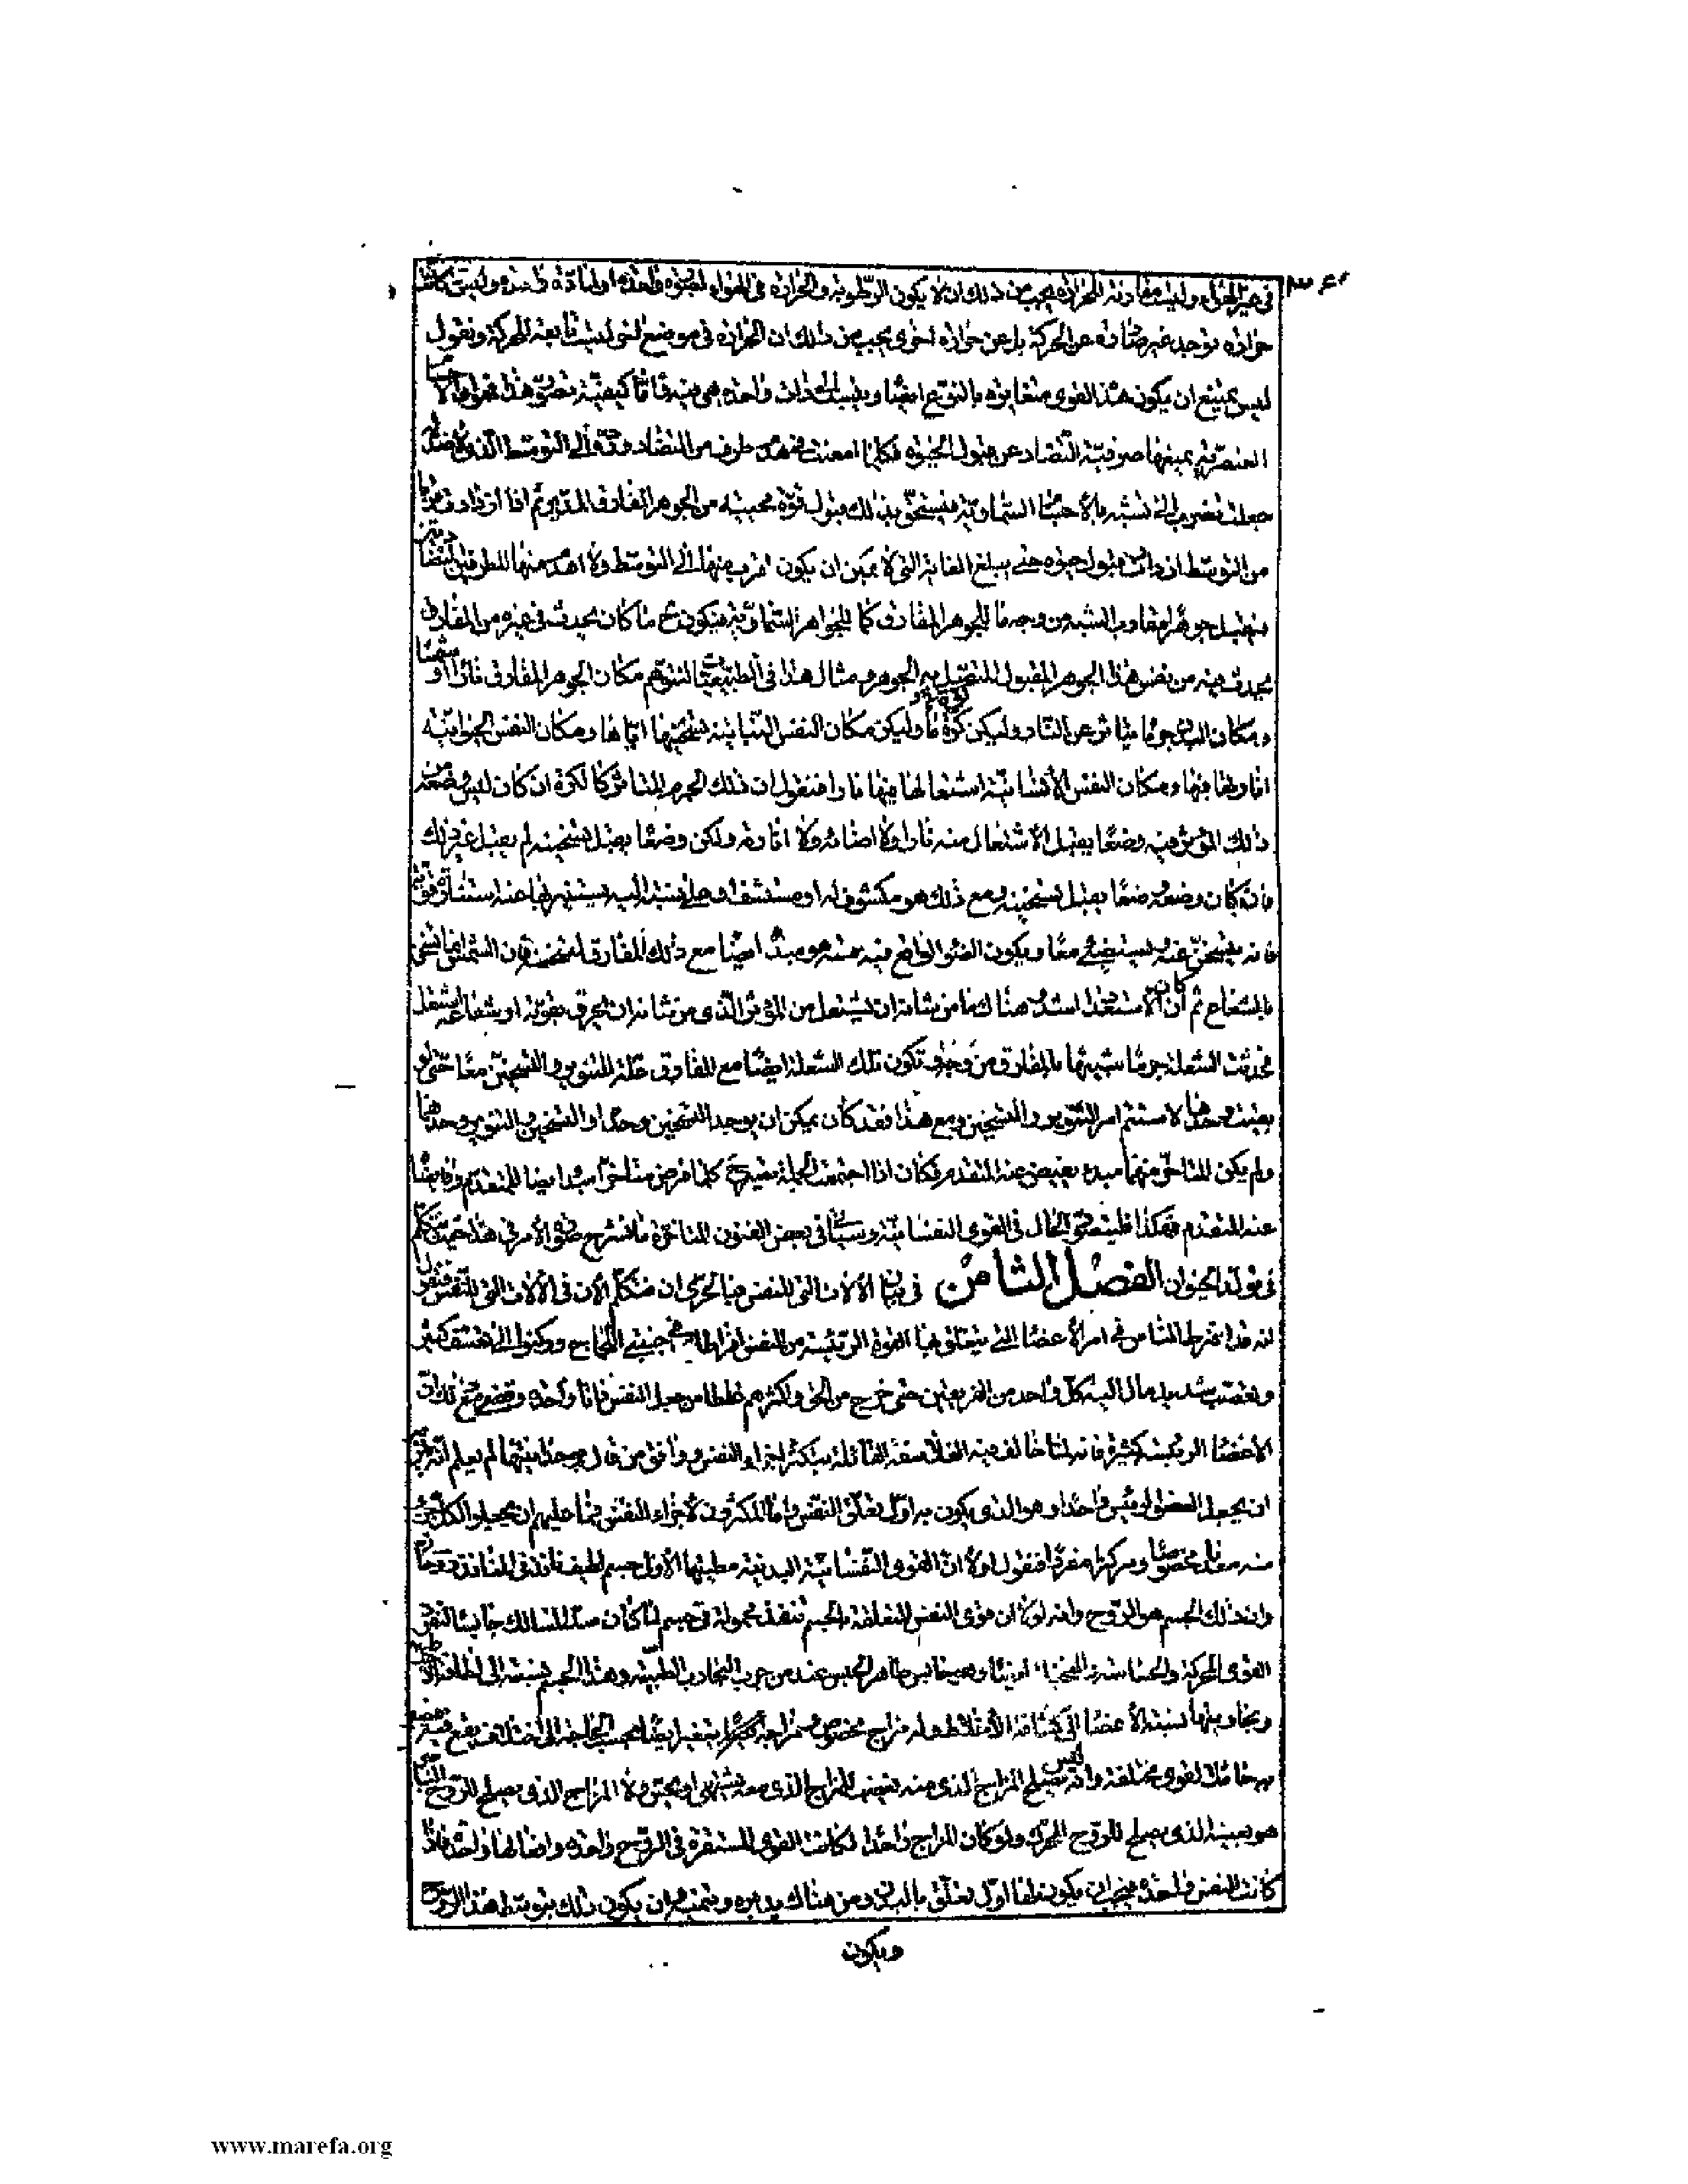 في غير الهواء وليست مقارنة للحرارة يجب من ذلك ان لا يكون الرطوبة والحرارة في الهواء لقوة واحدة او لمادة واحدة وليس كانت
حرارة توجد غير صادرة عن الحركة بل عن حرارة اخرى يجب من ذلك ان الحرارة في موضع اخر ليست تابعة للحركة ونقول
ليس يمتنع ان يكون هذه القوى متغايرة بالنوع ايضا وينسب الى ذات واحدة هي فيه فاما كيفية تصور هذا فهو ان الاجسام
العنصرية يمنعها صرفية التضاد عن قبول الحيوة فكلما امعنت في هدم طرف من التضاد ورده الى التوسط الذي لا ضد له
جعلت تضرب الى تشبه بالاجسام السماوية فيستحق بذلك قبول قوة محيية من الجوهر المفارق المدبر ثم اذا ازدادت قربا
من التوسط ازدادت قبول حيوة حتى يبلغ الغاية التي لا يمكن ان يكون اقرب منها الى التوسط ولا اهدم منها للطرفين المتضادين
فيقبل جوهرا مقارب الشبه من وجه ما للجوهر المفارق كما للجواهر السماوية فيكون ح ما كان يحدث في غيره من المفارق
يحدث فيه من نفس هذا الجوهر المقبول المتصل به الجوهر ومثال هذا في الطبيعيات لنتوهم مكان الجوهر المفارق نارا او شمسا
ومكان البدن جرما يتاثر عن النار وليكن كرة ما وليكن مكان النفس النباتية تسخينها اياها ومكان النفس الحيوانية
انارتها فيها ومكان النفس الانسانية اشتعالها فيها نارا فنقول ان ذلك الجرم المتاثر كالكرة ان كان ليس وضعه من
ذلك المؤثر فيه وضعا يقبل الاشتعال منه نارا ولا اضاءة ولا انارة ولكن وضعا يقبل تسخينه لم يقبل غير ذلك
فان كان وضعه وضعا يقبل تسخينه ومع ذلك هو مكشوف له او مستشف او على نسبة اليه يستنير بها عنه استنارة قوية
فانه يتسخن عنه ويستضئ معا ويكون الضوء الواقع فيه منه هو مبدأ ايضا مع ذلك المفارق لتسخينه فان الشمس انما تسخن
بالشعاع ثم ان كان الاستعداد اشد وهناك ما من شانه ان يشتعل من المؤثر الذي من شانه ان يحرق بقوته او شعاعه اشتعل
فحدثت الشعلة جرما شبيها بالمفارق من وجه وتكون تلك الشعلة ايضا مع المفارق علة للتنوير والتسخين معا حتى لو
بقيت وحدها لاستتم امر التنوير والتسخين ومع هذا فقد كان يمكن ان يوجد التسخين وحده او التسخين والتنوير وحدهما
ولم يكن المتاخر منهما مبدء يفيض عنه المتقدم وكان اذا اجتمعت الجملة يصير ح كلما فرض متاخرا مبدا ايضا للمتقدم وفايضا
عنه المتقدم فهكذا فليتصور الحال في القوى النفسانية وسياتى في بعض الفنون المتاخرة ما نشرح صورة الامر في هذا حيث نتكلم
في تولد الحيوان الفصل الثامن في بيان الالات التي للنفس فبالحرى ان نتكلم الان في الالات التي للنفس فنقول
انه قد افرط الناس في امر الاعضاء التي يتعلق بها القوة الرئيسة من النفس افراطا في جنبتي اللجاج وركنوا الى تعسف كثير
وتعصب شديد مال اليه كل واحد من الفريقين حتى خرج من الحق واكثرهم غلطا من جعل النفس ذاتا واحدة وقضى مع ذلك ان
الاعضاء الرئيسة كثيرة فانه لما خالف فيه الفلاسفة القائلة بتكثر اجزاء النفس ووافق من قال بوحدانيتها لم يعلم انه يلزمه
ان يجعل العضو الرئيس واحدا وهو الذي يكون به اول تعلق النفس واما المكثرون لاجزاء النفس فما عليهم ان يجعلوا لكل جزء
منه معدنا مخصوصا ومركزا مفردا فنقول اولا ان القوى النفسانية البدنية مطيتها الاولى جسم لطيف نافذ في المنافذ روحاني
وان ذلك الجسم هو الروح وانه لولا ان قوى النفس المتعلقة بالجسم تنفذ محمولة في جسم لما كان سد المسالك حابسا لنفوذ
القوى المحركة والحساسة والمتخيلة ايضا وهو حابس ظاهر الحبس عند من جرب التجارب الطبية وهذا الجسم نسبته الى لطافة الاخلاط
وبخاريتها نسبة الاعضاء الى كثافة الاخلاط وله مزاج مخصوص ومزاجه يتغير ايضا بحسب الحاجة الى اختلاف يقع فيه ليصير
به حاملا لقوى مختلفة وانه ليس يصلح المزاج الذي منه يغضب للمزاج الذي معه يشتهي او يحس ولا المزاج الذي يصلح للروح الباصر
هو بعينه الذي يصلح للروح المحرك ولو كان المزاج واحدا لكانت القوى المستقرة في الروح واحدة وافعالها واحدة فاذا
كانت النفس واحدة فيجب ان يكون لها اول تعلق بالبدن ومن هناك يدبره وينميه وان يكون ذلك بتوسط هذا الروح
ويكون
www.marefa.org